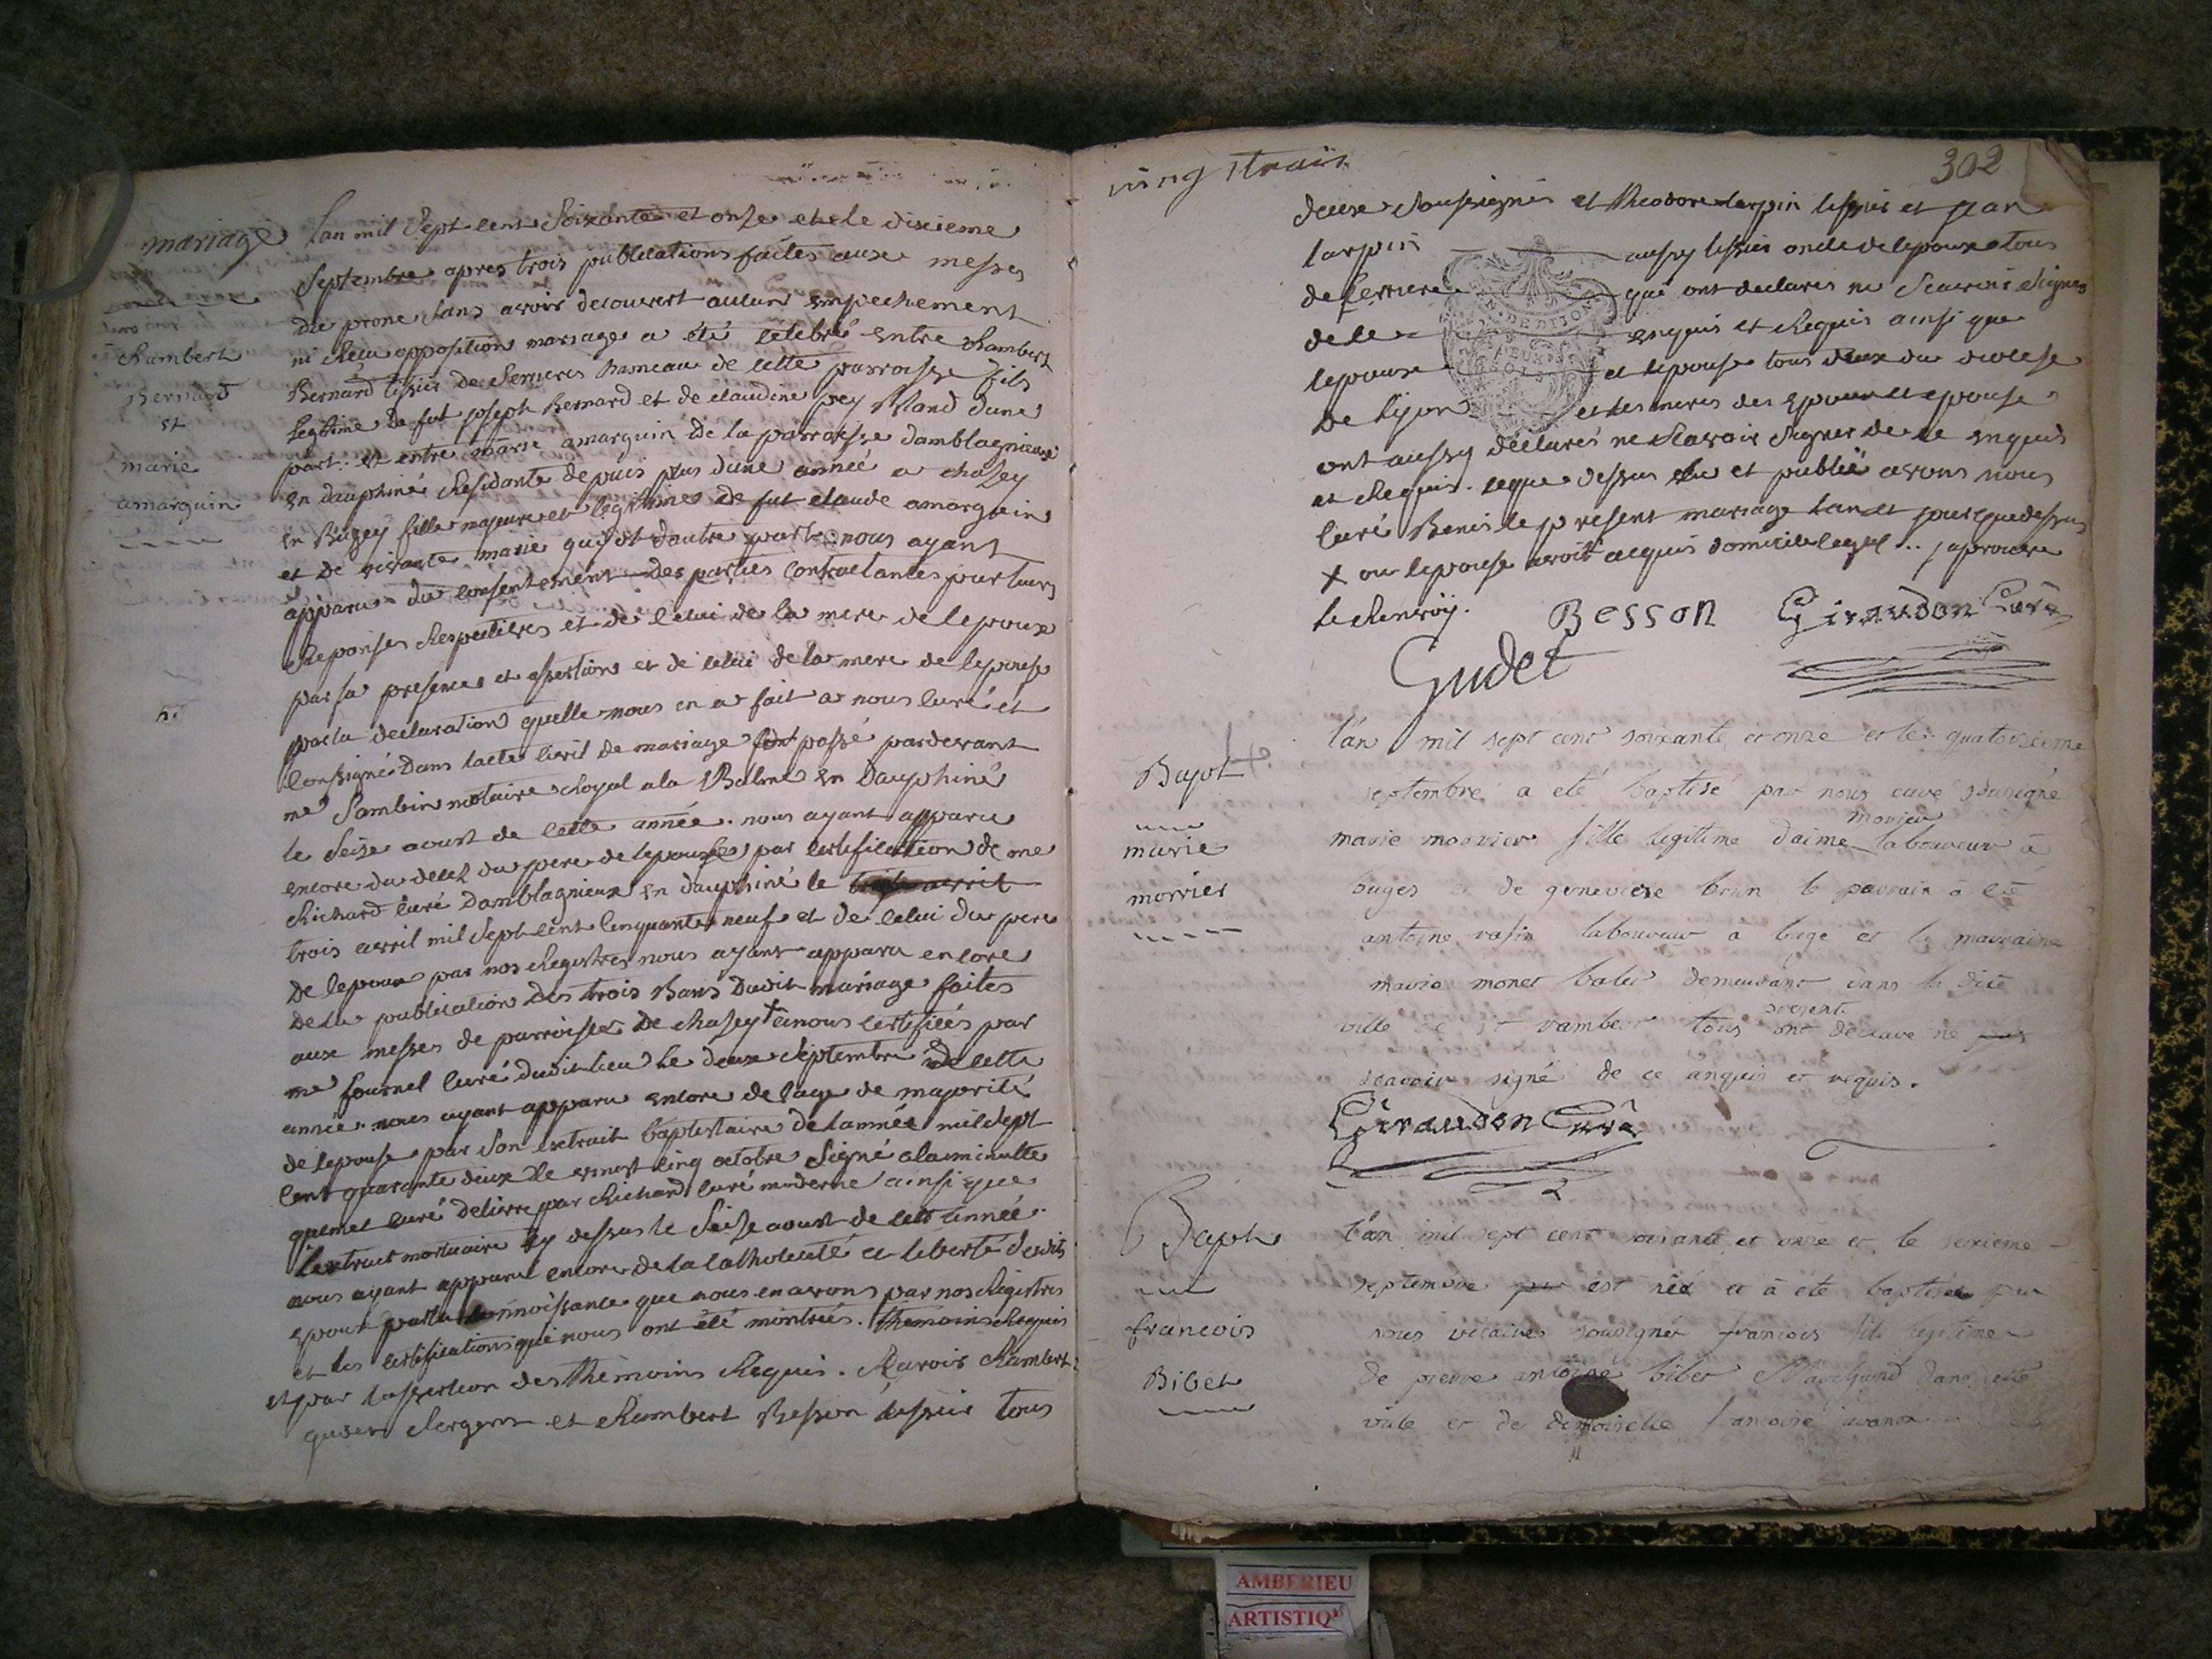 mariage
Rambert
Bernard
et
marie
amarguin
Lan mil Sept cent Soixante et onze et le dixieme
Septembre apres trois publications faites aux messes
du prone sans avoir decouvert aucun empechement
ni Recu opposition mariage a été celebré entre Rambert
Bernard tissier de Serrieres hameau de cette parroisse fils
legitime de fut joseph Bernard et de claudine prey Rland dune
part. et entre marie amarguin de la parroisse damblagnieux
en dauphiné Residante depuis plus dune année a chazey
en Bugey fille majeure et legitime de fut claude amarguin
et de vivante marie guyot dautre part. nous ayant
apparu du consentement des parties contractantes par leurs
Reponses Respectives et de celui de la mere de lepoux
par sa presence et assertion et de celui de la mere de lepouse
par la declaration quelle nous en a fait a nous curé et
consigné dans lacte civil de mariage passé pardevant
me Sambin notaire Royal a la Balme en Dauphiné
le Seize aoust de cette année. nous ayant apparu
encore du decez du pere de lepouse par certification de me
Richard curé Damblagnieux en dauphiné le
trois avril mil Sept cent cinquante neuf et de celui du pere
de lepoux par nos Registres nous ayant apparu encore
de la publication des trois Bans dudit mariage faites
aux messes de parroisse de chazey + a nous certifiées par
me fournel curé dudit lieu le deux Septembre de cette
année. nous ayant apparu encore de lage de majorité
de lepouse par son extrait baptistaire de lannée mil sept
cent quarante deux le vingt cinq octobre Signé a la minutte
quenet curé delivré par Richard curé moderne ainsi que
lextrait mortuaire cy dessus le Seize aoust de cette année.
nous ayant apparu encore de la catholicité et liberté dudit
epoux par la connoissance que nous en avons par nos Registres
et les certifications qui nous ont été montrées. themoins Requis
et par lassertion des themoins Requis. Scavoir Rambert
gudet Sergent et Rambert Besson tissier tous
ving trois
302
deux Soussignés et theodore larpin tissier et jean
larpin aussy tissier oncle de lepoux tous
de serriere qui ont declarés ne Scavoir Signer
de ce enquis et Requis ainsi que
lepoux et lepouse tous deux du diocese
de lyon et les meres des epoux et epouse
ont aussy declarés ne Scavoir Signer de ce enquis
et Requis. ce que dessus lu et publié avons nous
curé Benis le present mariage lan et jour que dessus
x ou lepouse avoit acquis domicile legal .. japrouve
le Renvoÿ. Besson Giraudon Curé
Gudet
Bapt
marie
morvier
l'an mil sept cent soixante et onze et le quatorzieme
septembre a eté baptisé par nous curé sousigné
morvier
marie morvier fille legitime d'aime laboureur a
buges et de genevieve brun le parrain a eté
antoine laboureur a buge et la marraine
marie monet demeurant dans la dite
present
ville de st rambert tous ont declaré ne
scavoir signé de ce anquis et requis.
Giraudon Curé
Bapt
francois
Bibet
l'an mil sept cent soixante et onze et le sexieme
septembre est néé et a eté baptisée par
nous vicaire sousigné francois fils legitime
de pierre antoine bibet Marchand dans cette
ville et de demoiselle francoise
AMBERIEU
ARTISTIQ